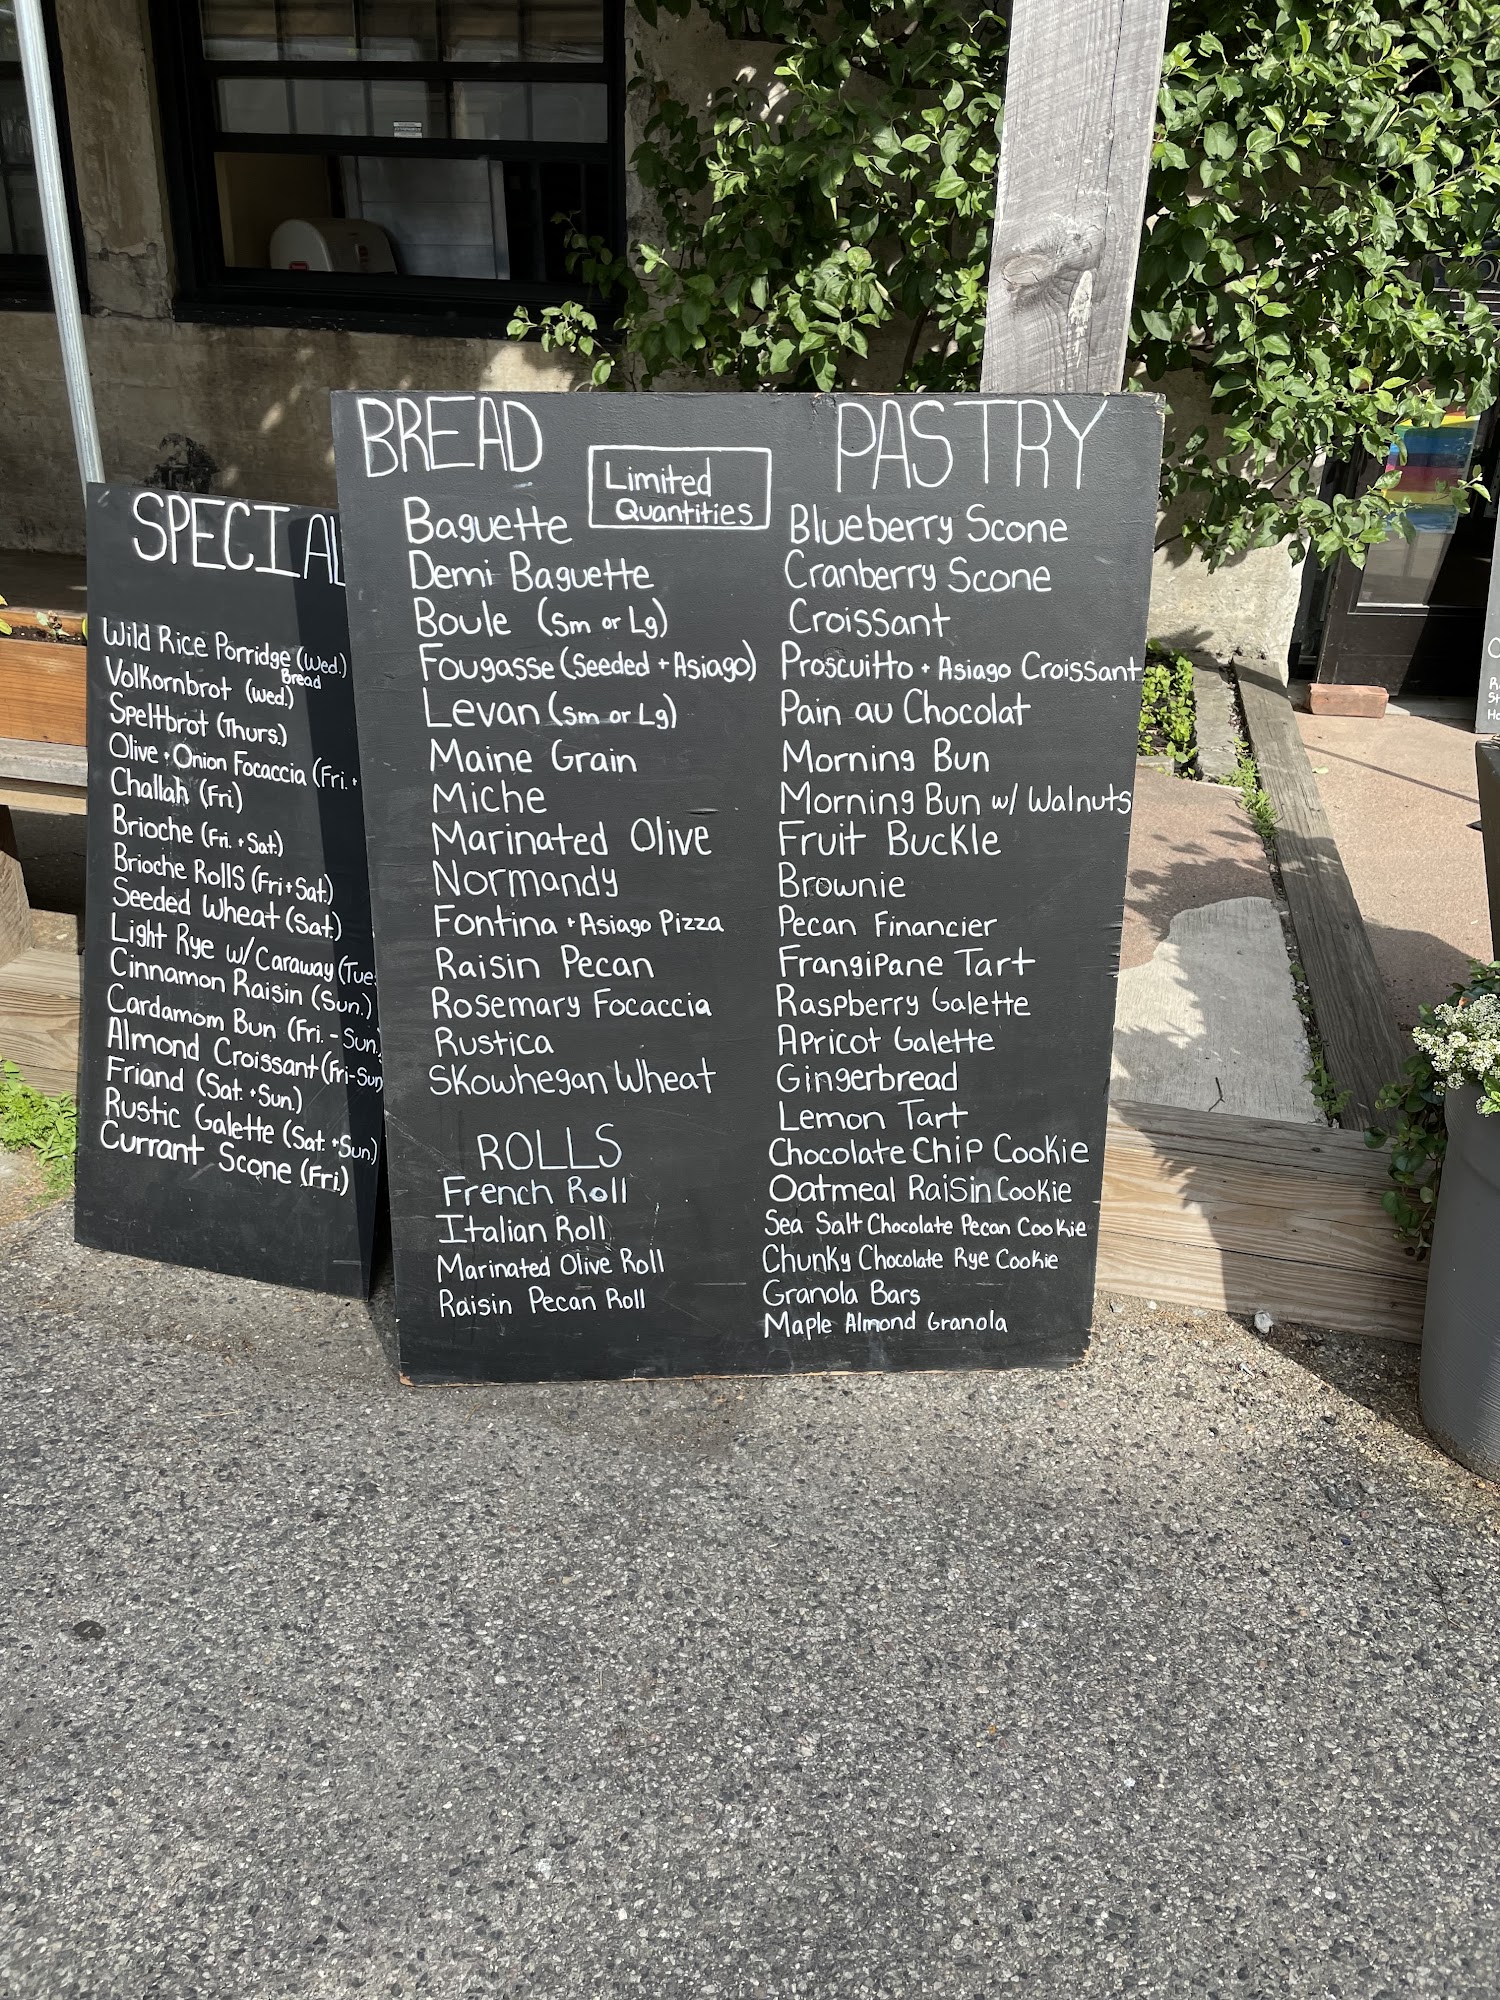 SPECIAL
Wild Rice Porridge (Wed.)
Bread
Volkornbrot (wed.)
Speltbrot (Thurs.)
Olive + Onion Focaccia (Fri. +
Challah (Fri)
Brioche (Fri. + Sat.)
Brioche Rolls (Fri + Sat.)
Seeded Wheat (Sat.)
Light Rye w/ Caraway (Tue
Cinnamon Raisin (Sun.)
Cardamom Bun (Fri. - Sun.)
Almond Croissant (Fri-Sun)
Friand (Sat. + Sun.)
Rustic Galette (Sat. + Sun.)
Currant Scone (Fri.)
BREAD
Limited
Quantities
Baguette
Demi Baguette
Boule (Sm or Lg)
Fougasse (Seeded + Asiago)
Levan (Sm or Lg)
Maine Grain
Miche
Marinated Olive
Normandy
Fontina + Asiago Pizza
Raisin Pecan
Rosemary Focaccia
Rustica
Skowhegan Wheat
ROLLS
French Roll
Italian Roll
Marinated Olive Roll
Raisin Pecan Roll
PASTRY
Blueberry Scone
Cranberry Scone
Croissant
Proscuitto + Asiago Croissant
Pain au Chocolat
Morning Bun
Morning Bun w/ Walnuts
Fruit Buckle
Brownie
Pecan Financier
Frangipane Tart
Raspberry Galette
Apricot Galette
Gingerbread
Lemon Tart
Chocolate Chip Cookie
Oatmeal Raisin Cookie
Sea Salt Chocolate Pecan Cookie
Chunky Chocolate Rye Cookie
Granola Bars
Maple Almond Granola